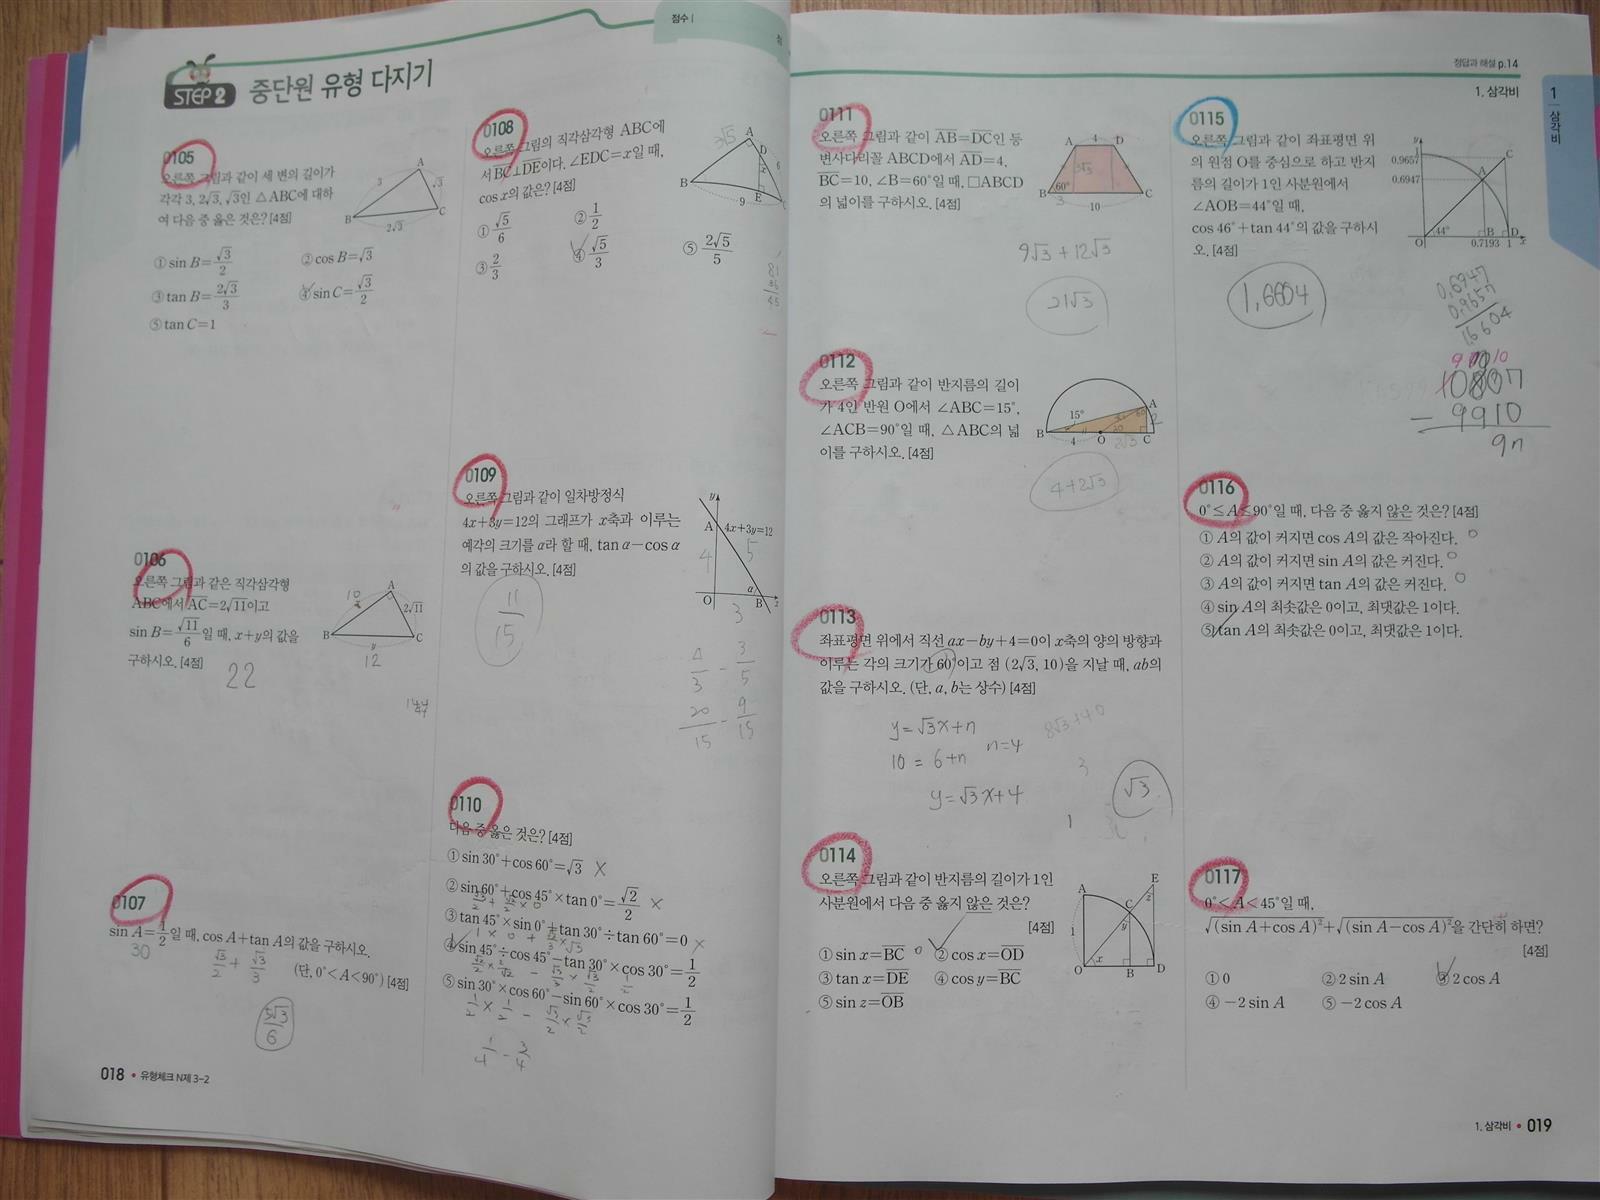 점수 |
STEP 2 중단원 유형 다지기
0105
오른쪽 그림과 같이 세 변의 길이가
각각 3, 2√3, √3인 △ABC에 대하
여 다음 중 옳은 것은? [4점]
A
3
√3
B
C
2√3
① sin B=√3/2
② cos B=√3
③ tan B=2√3/3
④ sin C=√3/2
⑤ tan C=1
0106
오른쪽 그림과 같은 직각삼각형
ABC에서 AC=2√11이고
sin B=√11/6일 때, x+y의 값을
구하시오. [4점]
A
10
x
2√11
B
C
y
12
22
144
0107
sin A=1/2일 때, cos A+tan A의 값을 구하시오.
(단, 0°<A<90°) [4점]
30
√3/2 + √3/3
5√3/6
018 • 유형체크 N제 3-2
0108
오른쪽 그림의 직각삼각형 ABC에
서 BC⊥DE이다. ∠EDC=x일 때,
cos x의 값은? [4점]
A
3√5
D
6
x
B
E
C
9
① √5/6
② 1/2
③ 2/3
④ √5/3
⑤ 2√5/5
81
36
45
0109
오른쪽 그림과 같이 일차방정식
4x+3y=12의 그래프가 x축과 이루는
예각의 크기를 a라 할 때, tan a-cos a
의 값을 구하시오. [4점]
y
A
4x+3y=12
4
5
a
O
B
x
3
11/15
4/3 - 3/5
20/15 - 9/15
0110
다음 중 옳은 것은? [4점]
① sin 30°+cos 60°=√3 ×
② sin 60°+cos 45°×tan 0°=√2/2 ×
√3/2 + √2/2 × 0
③ tan 45°×sin 0°+tan 30°÷tan 60°=0 ×
1 × 0 + √3/3 × √3
④ sin 45°÷cos 45°-tan 30°×cos 30°=1/2
√2/2 × 2/√2 - √3/3 × √3/2 1/2
⑤ sin 30°×cos 60°-sin 60°×cos 30°=1/2
1/2 × 1/2 - √3/2 × √3/2
1/4 - 3/4
정답과 해설 p.14
1. 삼각비
1
삼각비
0111
오른쪽 그림과 같이 AB=DC인 등
변사다리꼴 ABCD에서 AD=4,
BC=10, ∠B=60°일 때, □ABCD
의 넓이를 구하시오. [4점]
A
4
D
3√3
60°
B
C
3
10
9√3 + 12√3
21√3
0112
오른쪽 그림과 같이 반지름의 길이
가 4인 반원 O에서 ∠ABC=15°,
∠ACB=90°일 때, △ABC의 넓
이를 구하시오. [4점]
A
15°
2
30
B
4
O
2√3
C
4+2√3
0113
좌표평면 위에서 직선 ax-by+4=0이 x축의 양의 방향과
이루는 각의 크기가 60°이고 점 (2√3, 10)을 지날 때, ab의
값을 구하시오. (단, a, b는 상수) [4점]
y=√3x+n
10 = 6+n
n=4
y=√3x+4
√3
0114
오른쪽 그림과 같이 반지름의 길이가 1인
사분원에서 다음 중 옳지 않은 것은?
[4점]
E
A
C
z
y
1
x
O
B
D
① sin x=BC
② cos x=OD
③ tan x=DE
④ cos y=BC
⑤ sin z=OB
0115
오른쪽 그림과 같이 좌표평면 위
의 원점 O를 중심으로 하고 반지
름의 길이가 1인 사분원에서
∠AOB=44°일 때,
cos 46°+tan 44°의 값을 구하시
오. [4점]
y
0.9657
C
0.6947
A
44°
O
B
D
0.7193
1
x
1.6604
0.6947
0.9657
1.6604
10807
- 9910
0116
0°≤A≤90°일 때, 다음 중 옳지 않은 것은? [4점]
① A의 값이 커지면 cos A의 값은 작아진다.
② A의 값이 커지면 sin A의 값은 커진다.
③ A의 값이 커지면 tan A의 값은 커진다.
④ sin A의 최솟값은 0이고, 최댓값은 1이다.
⑤ tan A의 최솟값은 0이고, 최댓값은 1이다.
0117
0°<A<45°일 때,
√(sin A+cos A)²+√(sin A-cos A)²을 간단히 하면?
[4점]
① 0
② 2 sin A
③ 2 cos A
④ -2 sin A
⑤ -2 cos A
1. 삼각비 • 019